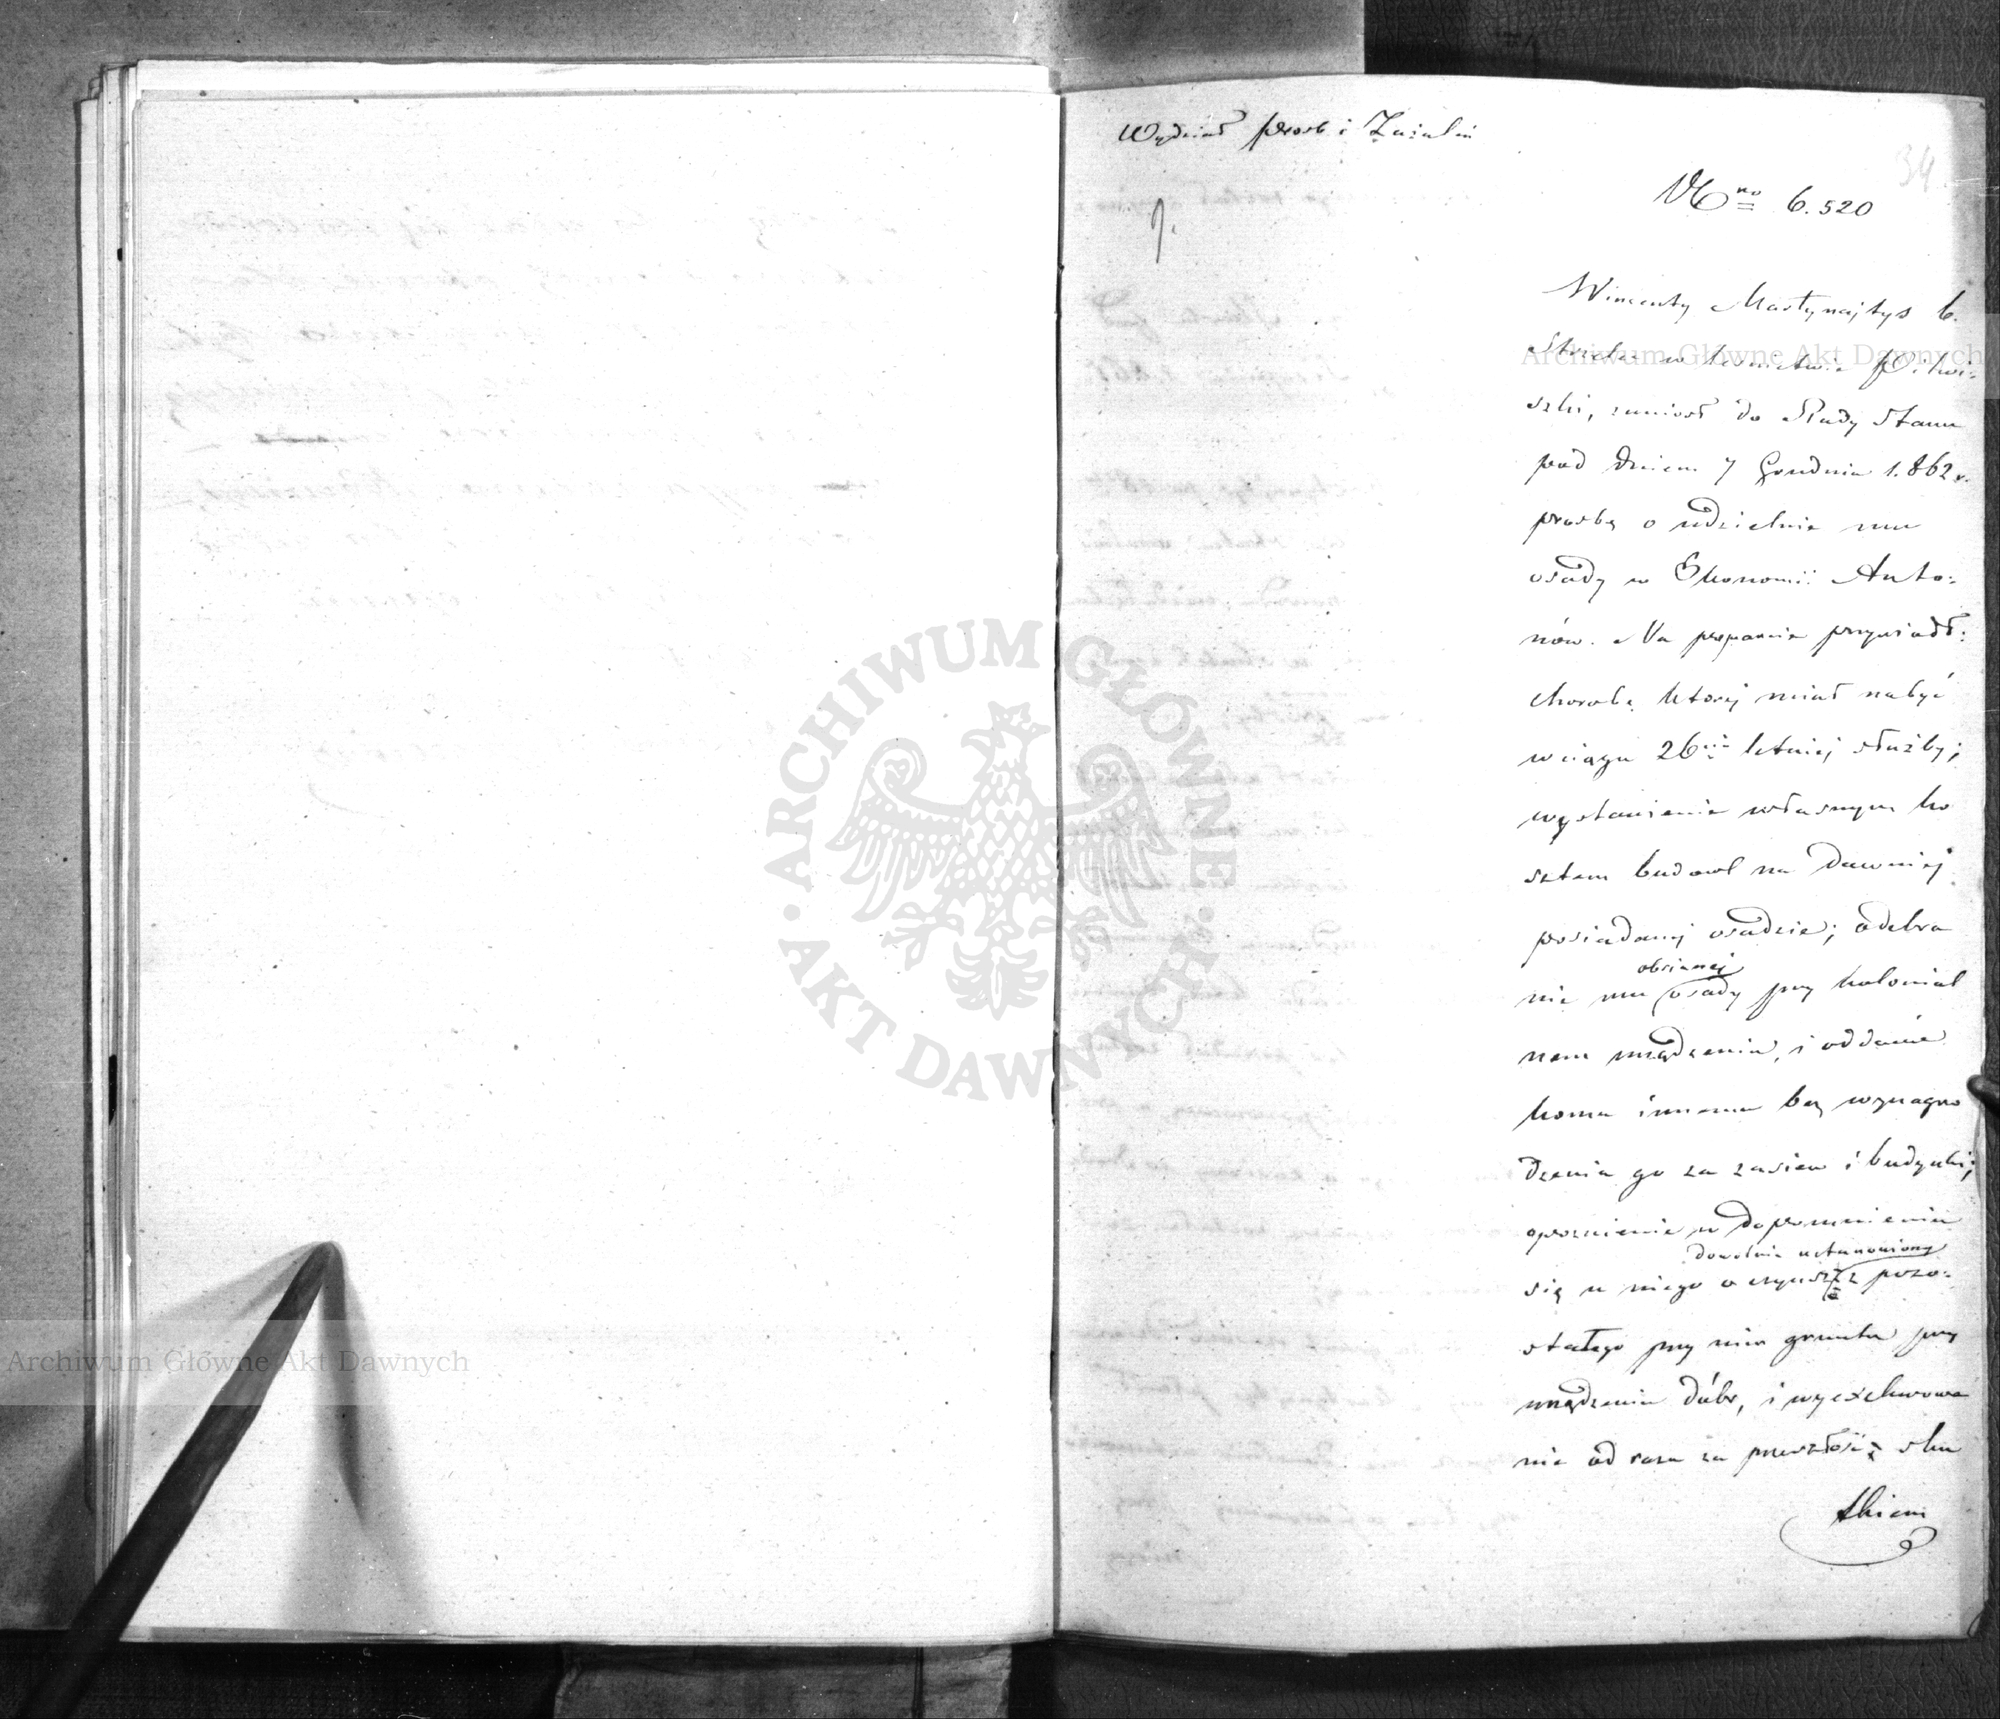 Wydział Prosb i Zażaleń
34
No 6.520
Wincenty Martynajtys b.
Strzelec w Leśnictwie Pilwi-
szki, zaniósł do Rady Stanu
pod dniem 7 Grudnia 1.862 r.
prosbę o udzielnie mu
osady w Ekonomii Anto-
nów. Na poparcie przywiódł:
chorobę której miał nabyć
w ciągu 26cio letniej służby;
wystawienie własnym ko
sztem budowl na dawniej
posiadanej osadzie; odebra
nie mu obsianej osady przy kolonial
nem urządzeniu, i oddanie
komu innemu bez wynagro
dzenia go za zasiew i budynki;
opoznienie w dopomnieniu
się u niego o czynsz dowolnie ustanowiony z pozo-
stałego przy nim gruntu przy
urządzeniu dóbr, i wyexekwowa
nie od razu za przeszłość; sku
tkiem
ARCHIWUM GŁÓWNE AKT DAWNYCH
Archiwum Główne Akt Dawnych
Archiwum Główne Akt Dawnych